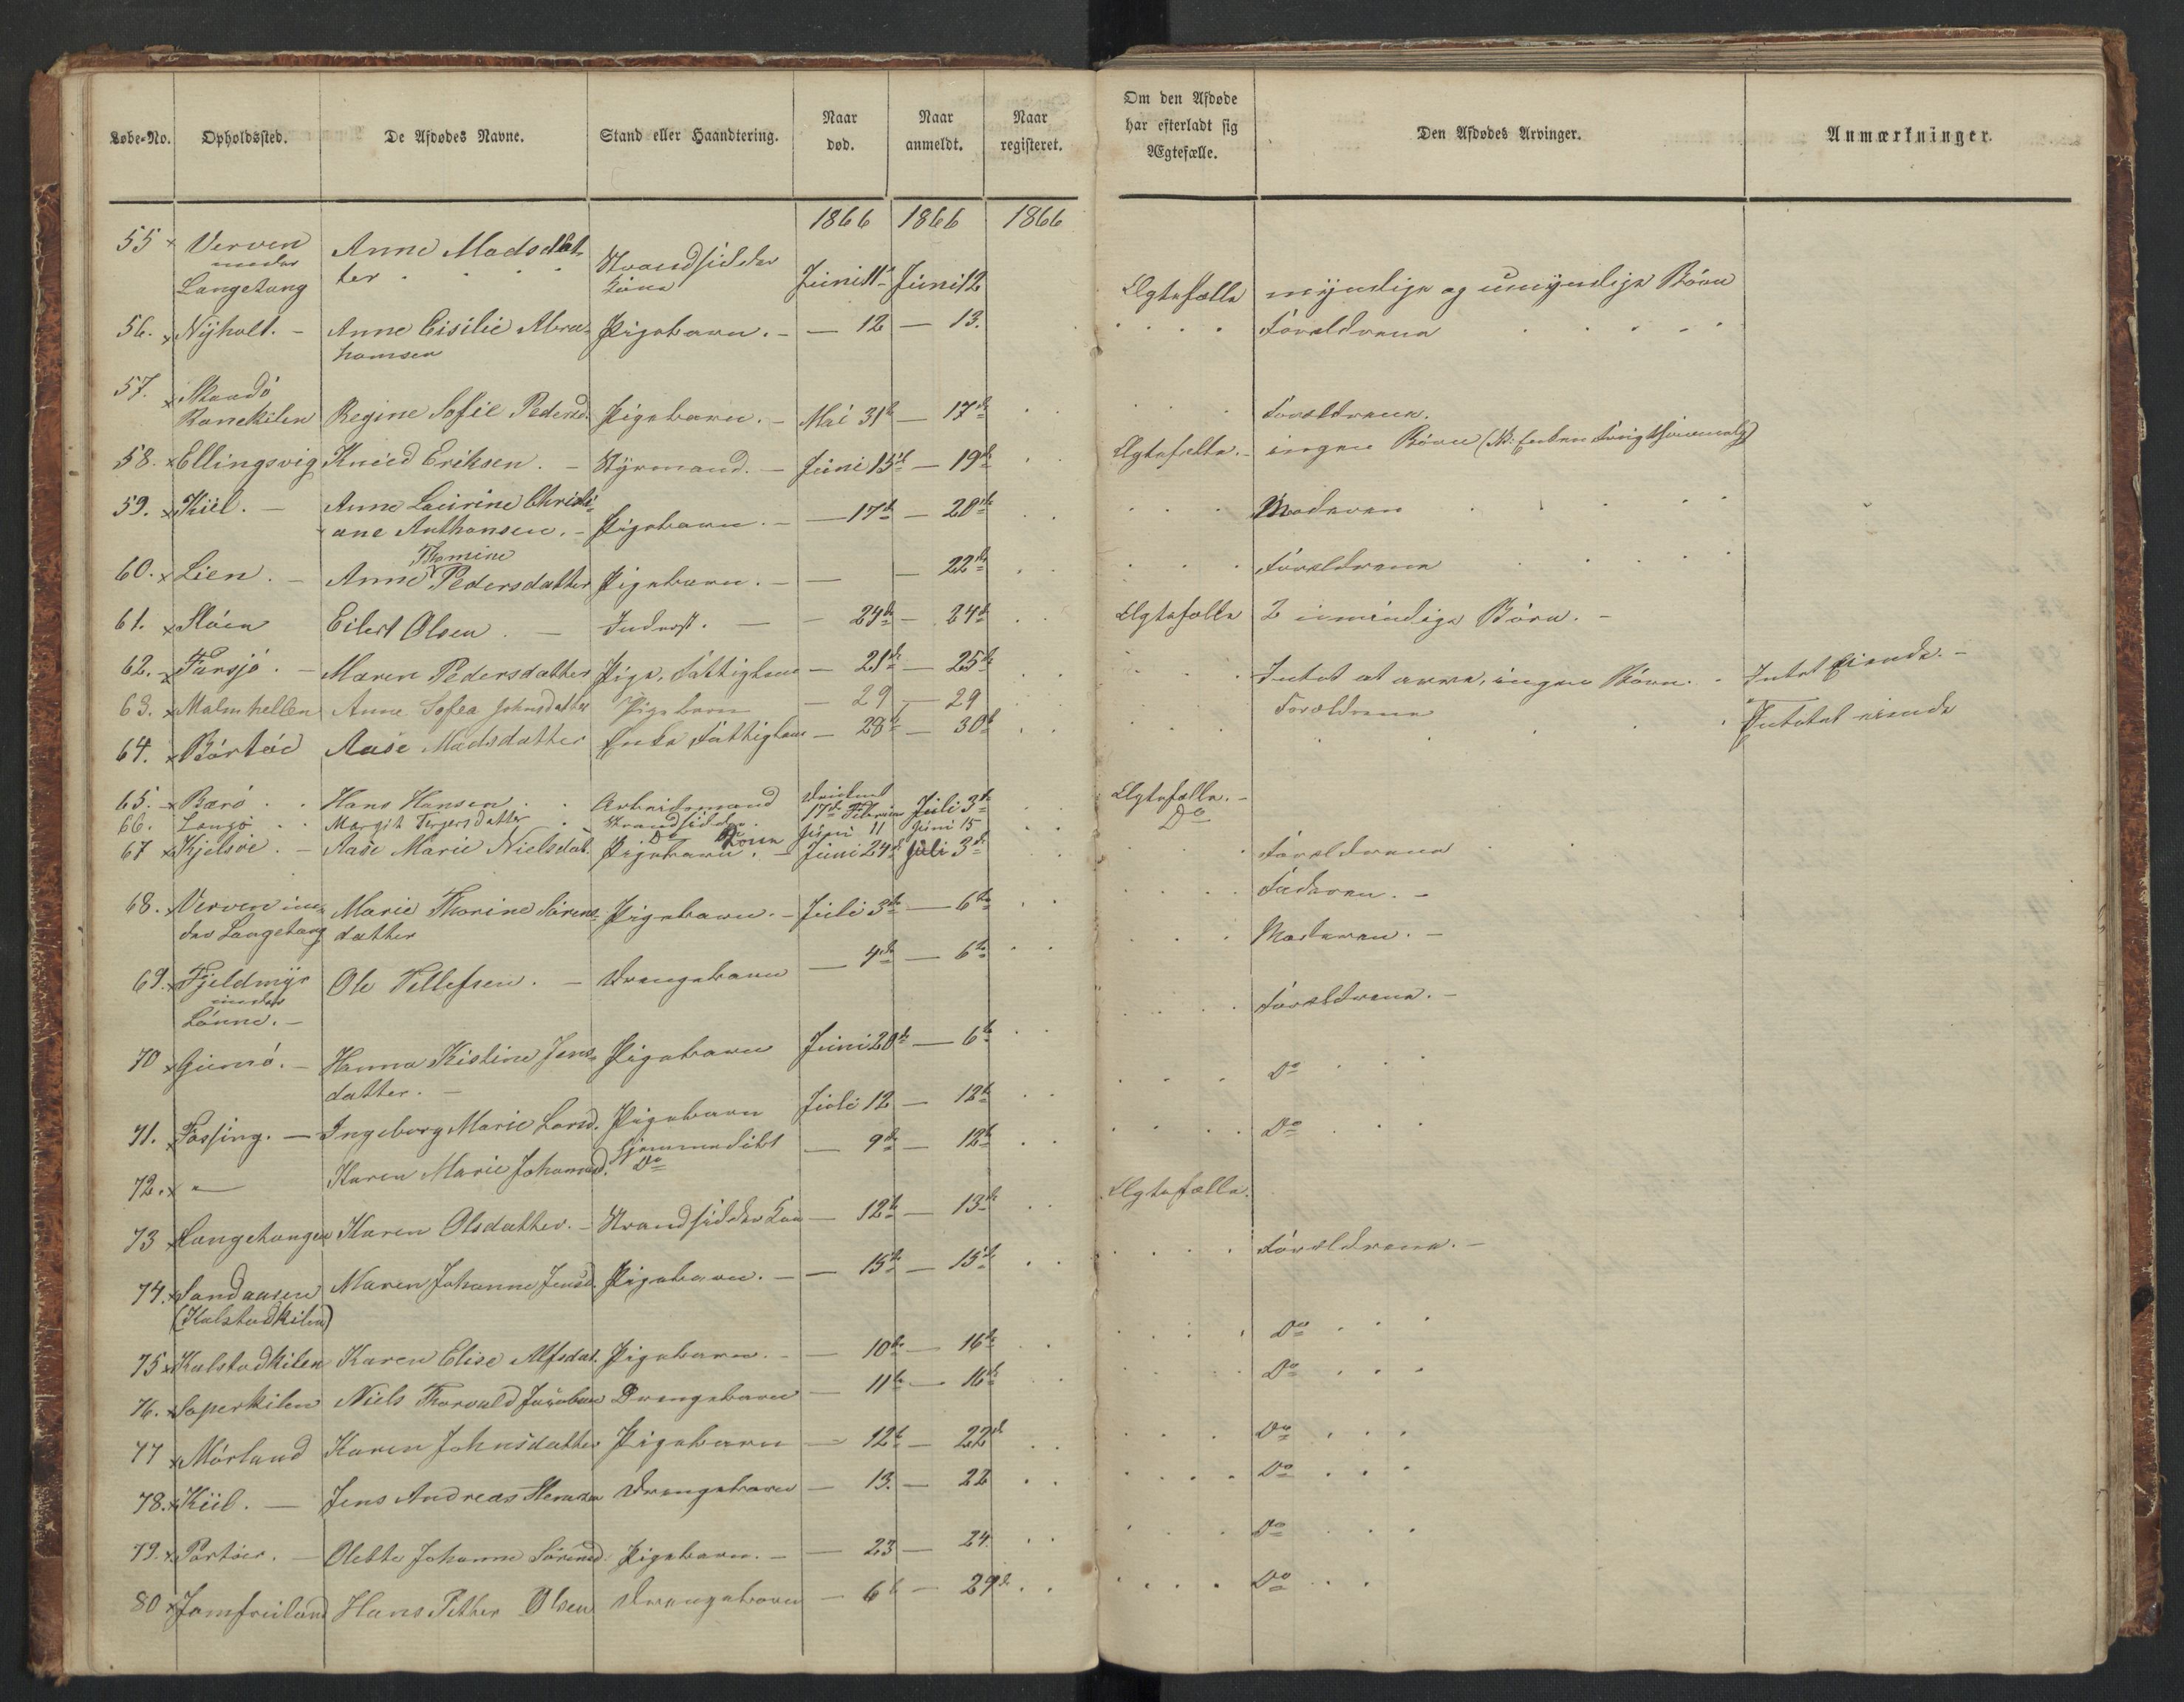 Løbe-No. Opholdssted. De Afdødes Navne. Stand eller Haandtering. Naar død. Naar anmeldt. Naar registeret. Om den Afdøde har efterladt sig Ægtefælle. Den Afdødes Arvinger. Anmærkninger.
1866 1866 1866
55 Verven under Langetang Anne Madsdatter Strandsidder Kone Juni 11 Juni 12 Egtefælle myndige og umyndige Börn
56. Nyholt. - Anne Cisilie Abrahamsen Pigebarn. - — 12 — 13. Foreldrene
57. Skaadö Ranekilen Regine Sofie Pedersd. Pigebarn. - Mai 31 — 17de Foreldrene.
58. Ellingsvig Knud Eriksen. - Styrmand. - Juni 15de — 19de Egtefelle. - ingen Börn
59. Kiil. - Anne Laurine Christiane Anthonsen. - Pigebarn. - — 17de — 20de Moderen
60. Lien. - Anne Thomine Pedersdatter Pigebarn. - — — 22de Foreldrene
61. Slöen Eilert Olsen. - Inderst. - — 24de — 24de Egtefelle 2 umindige Börn. -
62. Farsjö. - Maren Pedersdatter Pige, Fattiglem — 21de — 25de Intet at arve, ingen Börn. Intet Eiende. -
63. Malmhellen Anne Sofea Johnsdatter Pigebarn — 29 — 29 Foreldrene
64. Börtöe Aase Madsdatter Enke Fattiglem — 28de — 30te Intetat eiende
65. Barö Hans Hansen Arbeidsmand druknet 17de Februar Juli 3de Egtefelle. -
66. Langö Margit Terjersdatter Strandsidder Do Kone Juni 11 Juni 15 Do
67 Kjelsöe. - Aase Marie Nielsdat. Pigebarn. - Juni 24de Juli 3de Foreldrene
68. Verven under Langetang Marie Thorine Sörensdatter Pigebarn. - Juli 3de — 6te Faderen. -
Moderen. -
69. Fjeldmyr under Lönne. - Ole Vellefsen. - Drengebarn — 4de — 6te Foreldrene. -
70 Gumö. - Hanna Kistine Jensdatter. - Pigebarn Juni 20de — 6te Do
71. Fossing. — Ingeborg Marie Larsd. Pigebarn Juli 12 — 12te Do
72. " — Karen Marie Johannesd. Hjemmedöbt Do — 9de — 12te
73 Langetangen Karen Olsdatter. - Strandsidder Kone — 12te — 13de Egtefelle.
74. Sandaasen (Kalstadkilen) Maren Johanne Jensd. Pigebarn. - — 15de — 15de Foreldrene. -
75 Kalstadkilen Karen Elise Alfsdat. Pigebarn. - — 10de — 16de Do
76. Saperkilen Niels Thorvald Jacobsen Drengebarn — 11te — 16de Do
77 Mörland Karen Johnsdatter Pigebarn — 12te — 22de Do
78. Kiil. — Jens Andreas Stensen Drengebarn — 13. — 22 Do
79. Portöer. — Olette Johanne Sörensd. Pigebarn. - — 23 — 24 Do
80 Jomfruland Hans Pether Olsen Drengebarn — 6te — 29de Do